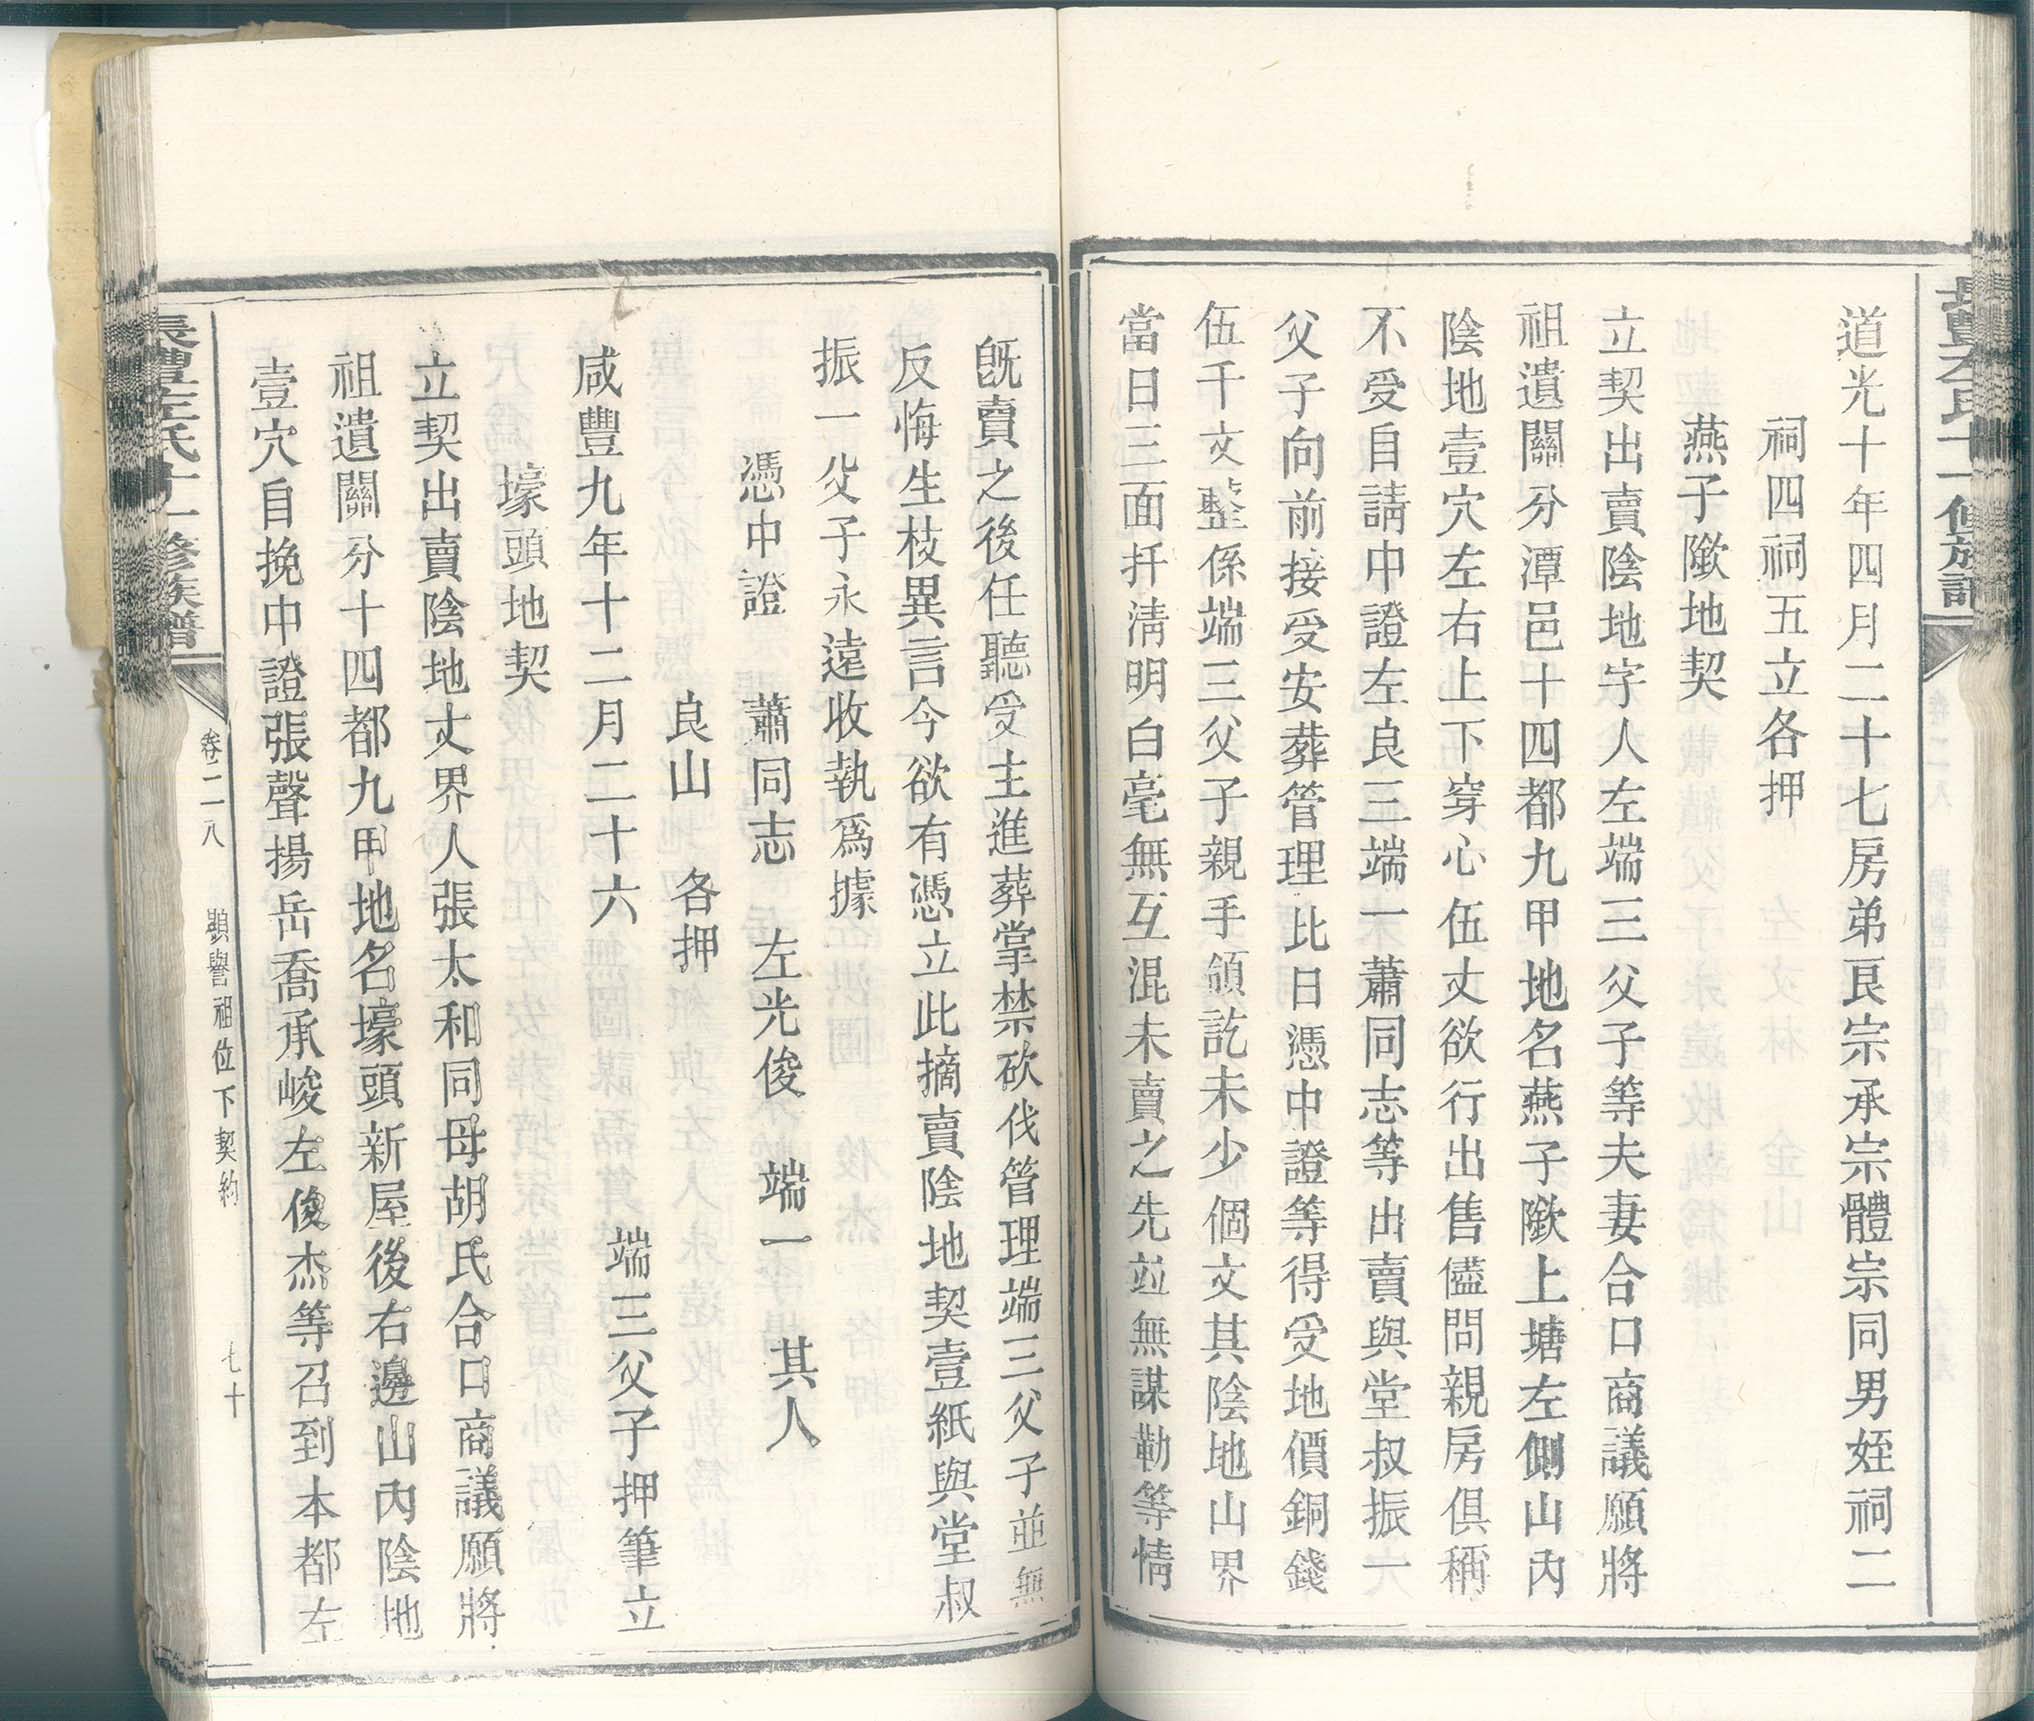 道光十年四月二十七房弟艮宗承宗體宗同男姪祠二
祠四祠五立各押
燕子歘地契
立契出賣陰地字人左端三父子等夫妻合口商議願將
祖遺關分潭邑十四都九甲地名燕子歘上塘左側山內
陰地壹穴左右上下穿心伍丈欲行出售儘問親房俱稱
不受自請中證左良三端一蕭同志等出賣與堂叔振一
父子向前接受安葬管理比日憑中證等得受地價銅錢
伍千文整係端三父子親手領訖未少個文其陰地山界
當日三面扦清明白毫無互混未賣之先並無謀勒等情
既賣之後任聽受主進葬掌禁砍伐管理端三父子並無
反悔生枝異言今欲有憑立此摘賣陰地契壹紙與堂叔
振一父子永遠收執爲據
憑中證 蕭同志 左光俊 端一 其人
良山 各押
咸豐九年十二月二十六 端三父子押筆立
壕頭地契
立契出賣陰地丈界人張太和同母胡氏合口商議願將
祖遺關分十四都九甲地名壕頭新屋後右邊山內陰地
壹穴自挽中證張聲揚岳喬承峻左俊杰等召到本都左
長豐左氏十一修族譜
卷二八 顯譽祖位下契約 七十